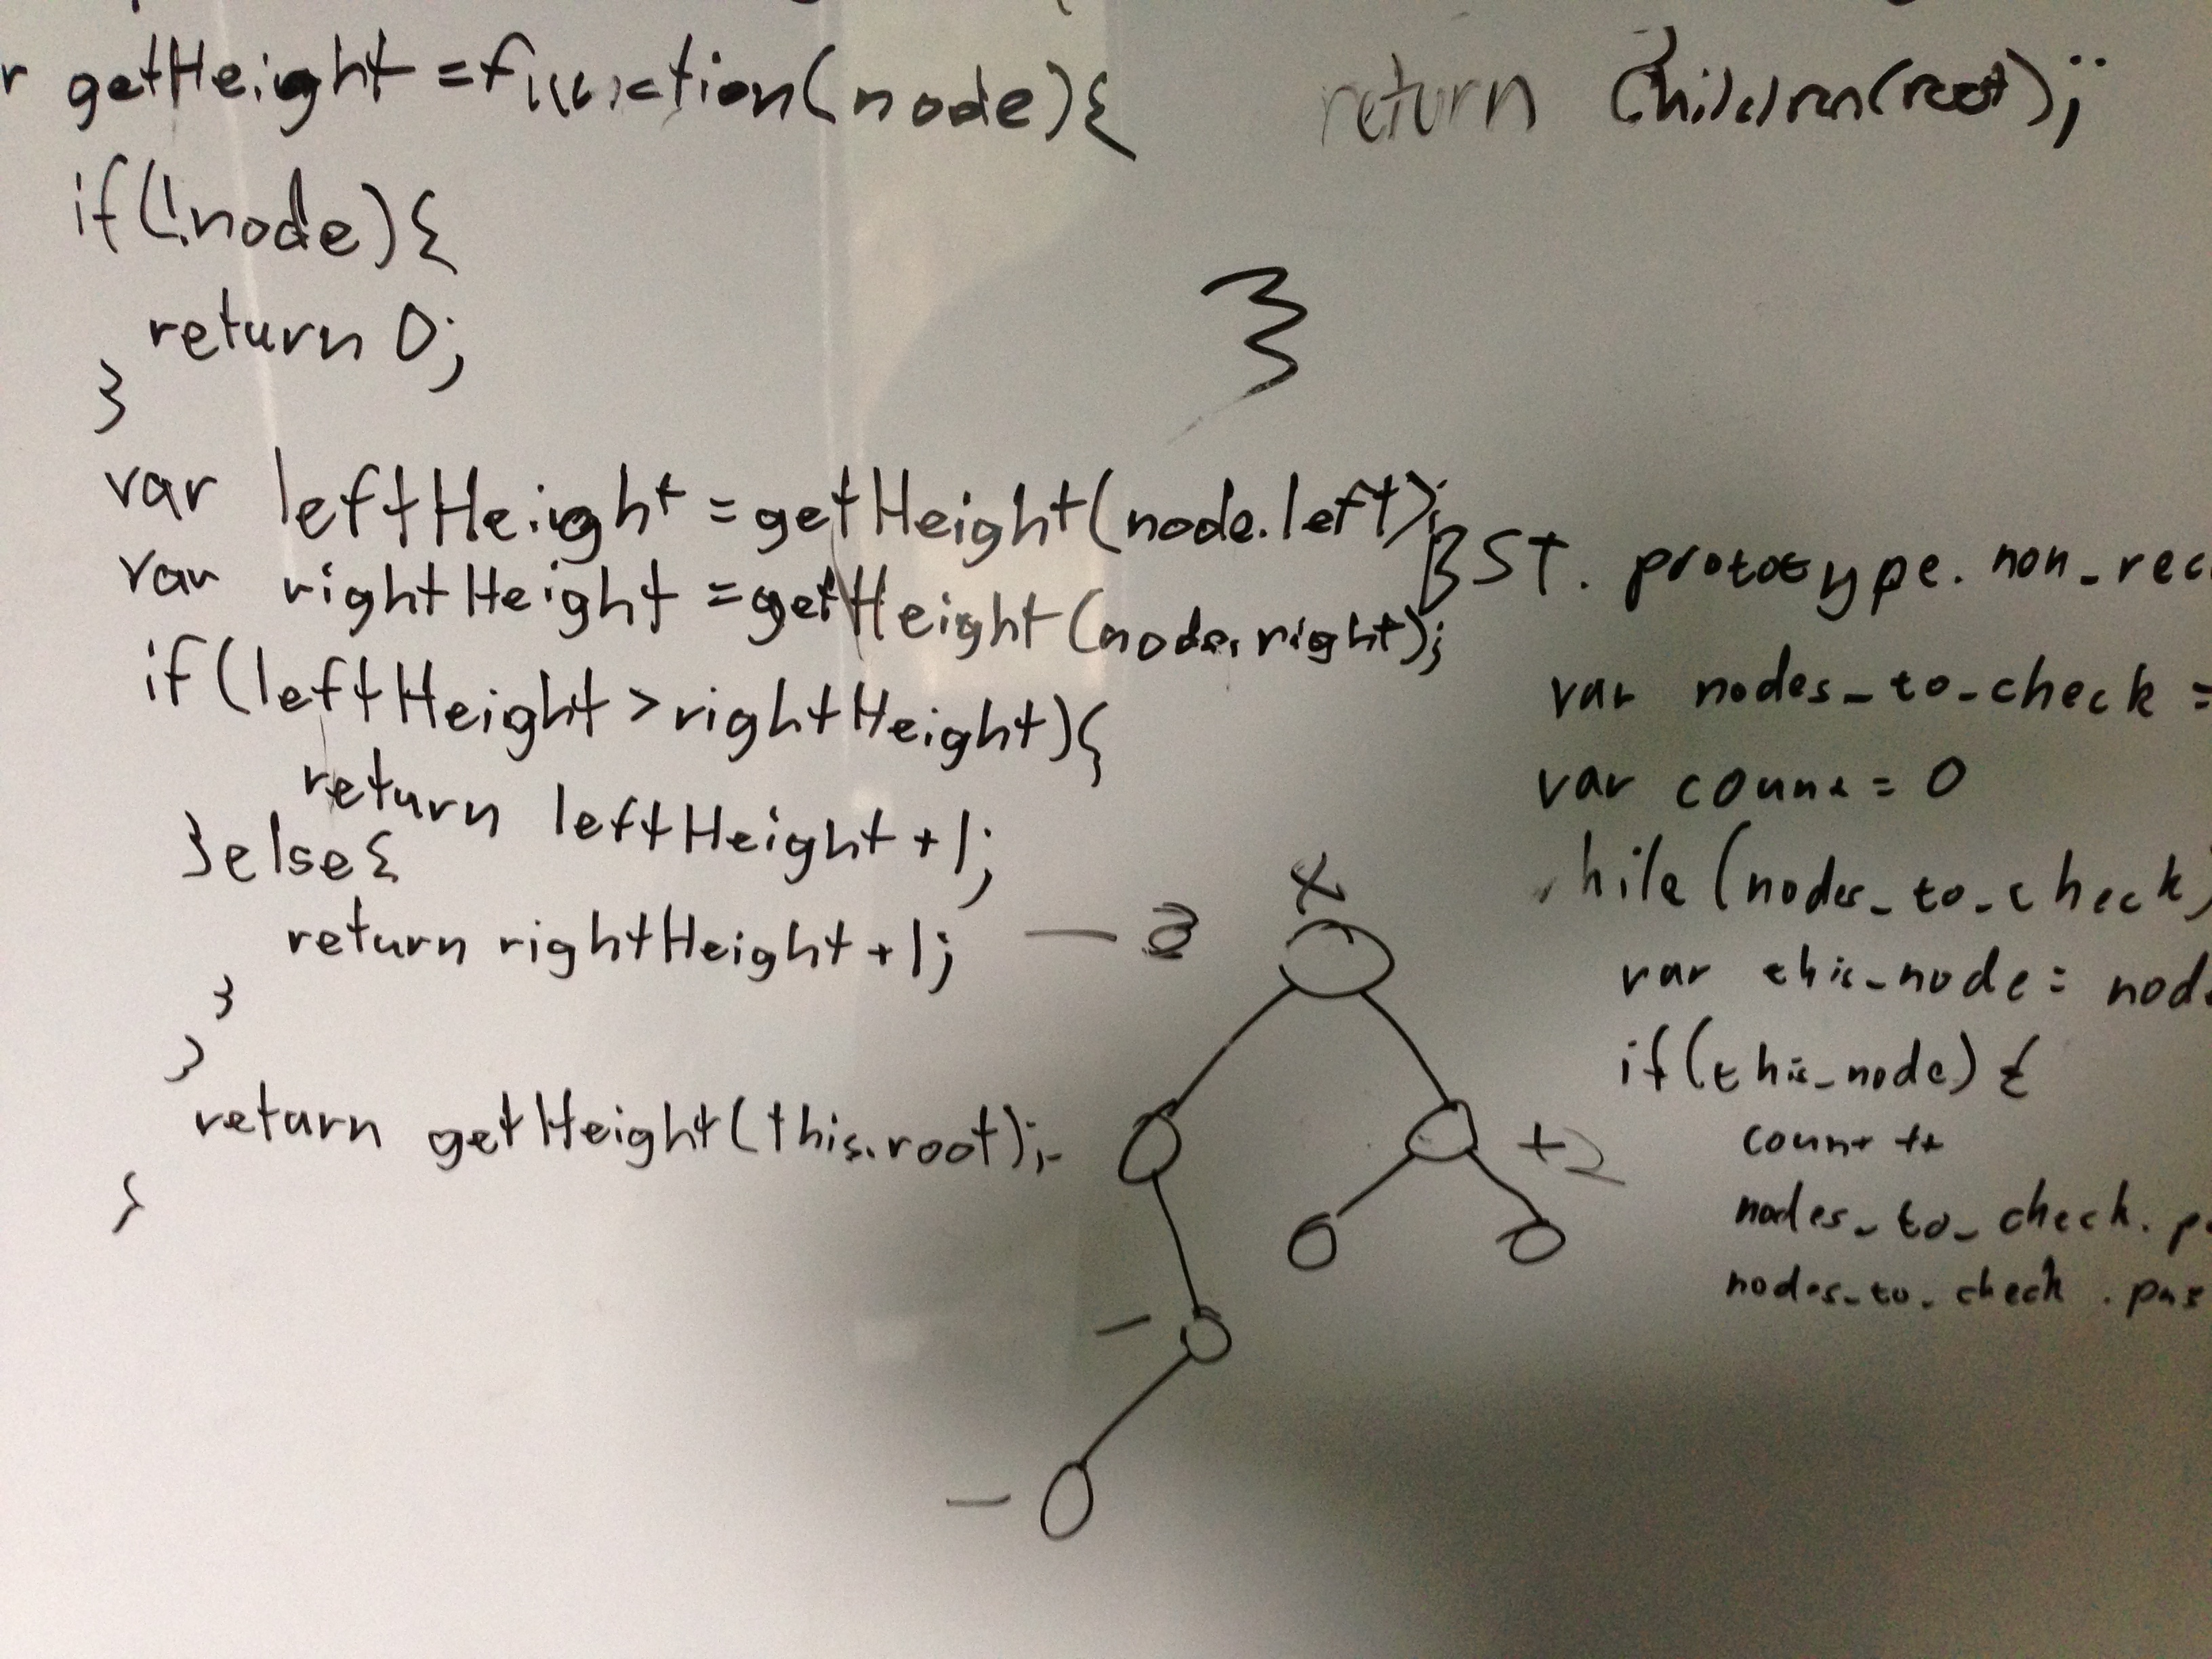 r getHeight = function(node){
if(!node){
return 0;
}
var leftHeight = getHeight(node.left);
var rightHeight = getHeight(node.right);
if(leftHeight > rightHeight){
return leftHeight + 1;
}else{
return rightHeight + 1;
}
}
return getHeight(this.root);
}
return Children(root);
}
BST.prototype.non_rec
var nodes_to_check =
var count = 0
hile (nodes_to_check)
var this_node = node
if(this_node) {
count ++
nodes_to_check. p
nodes_to_check .pus
+2